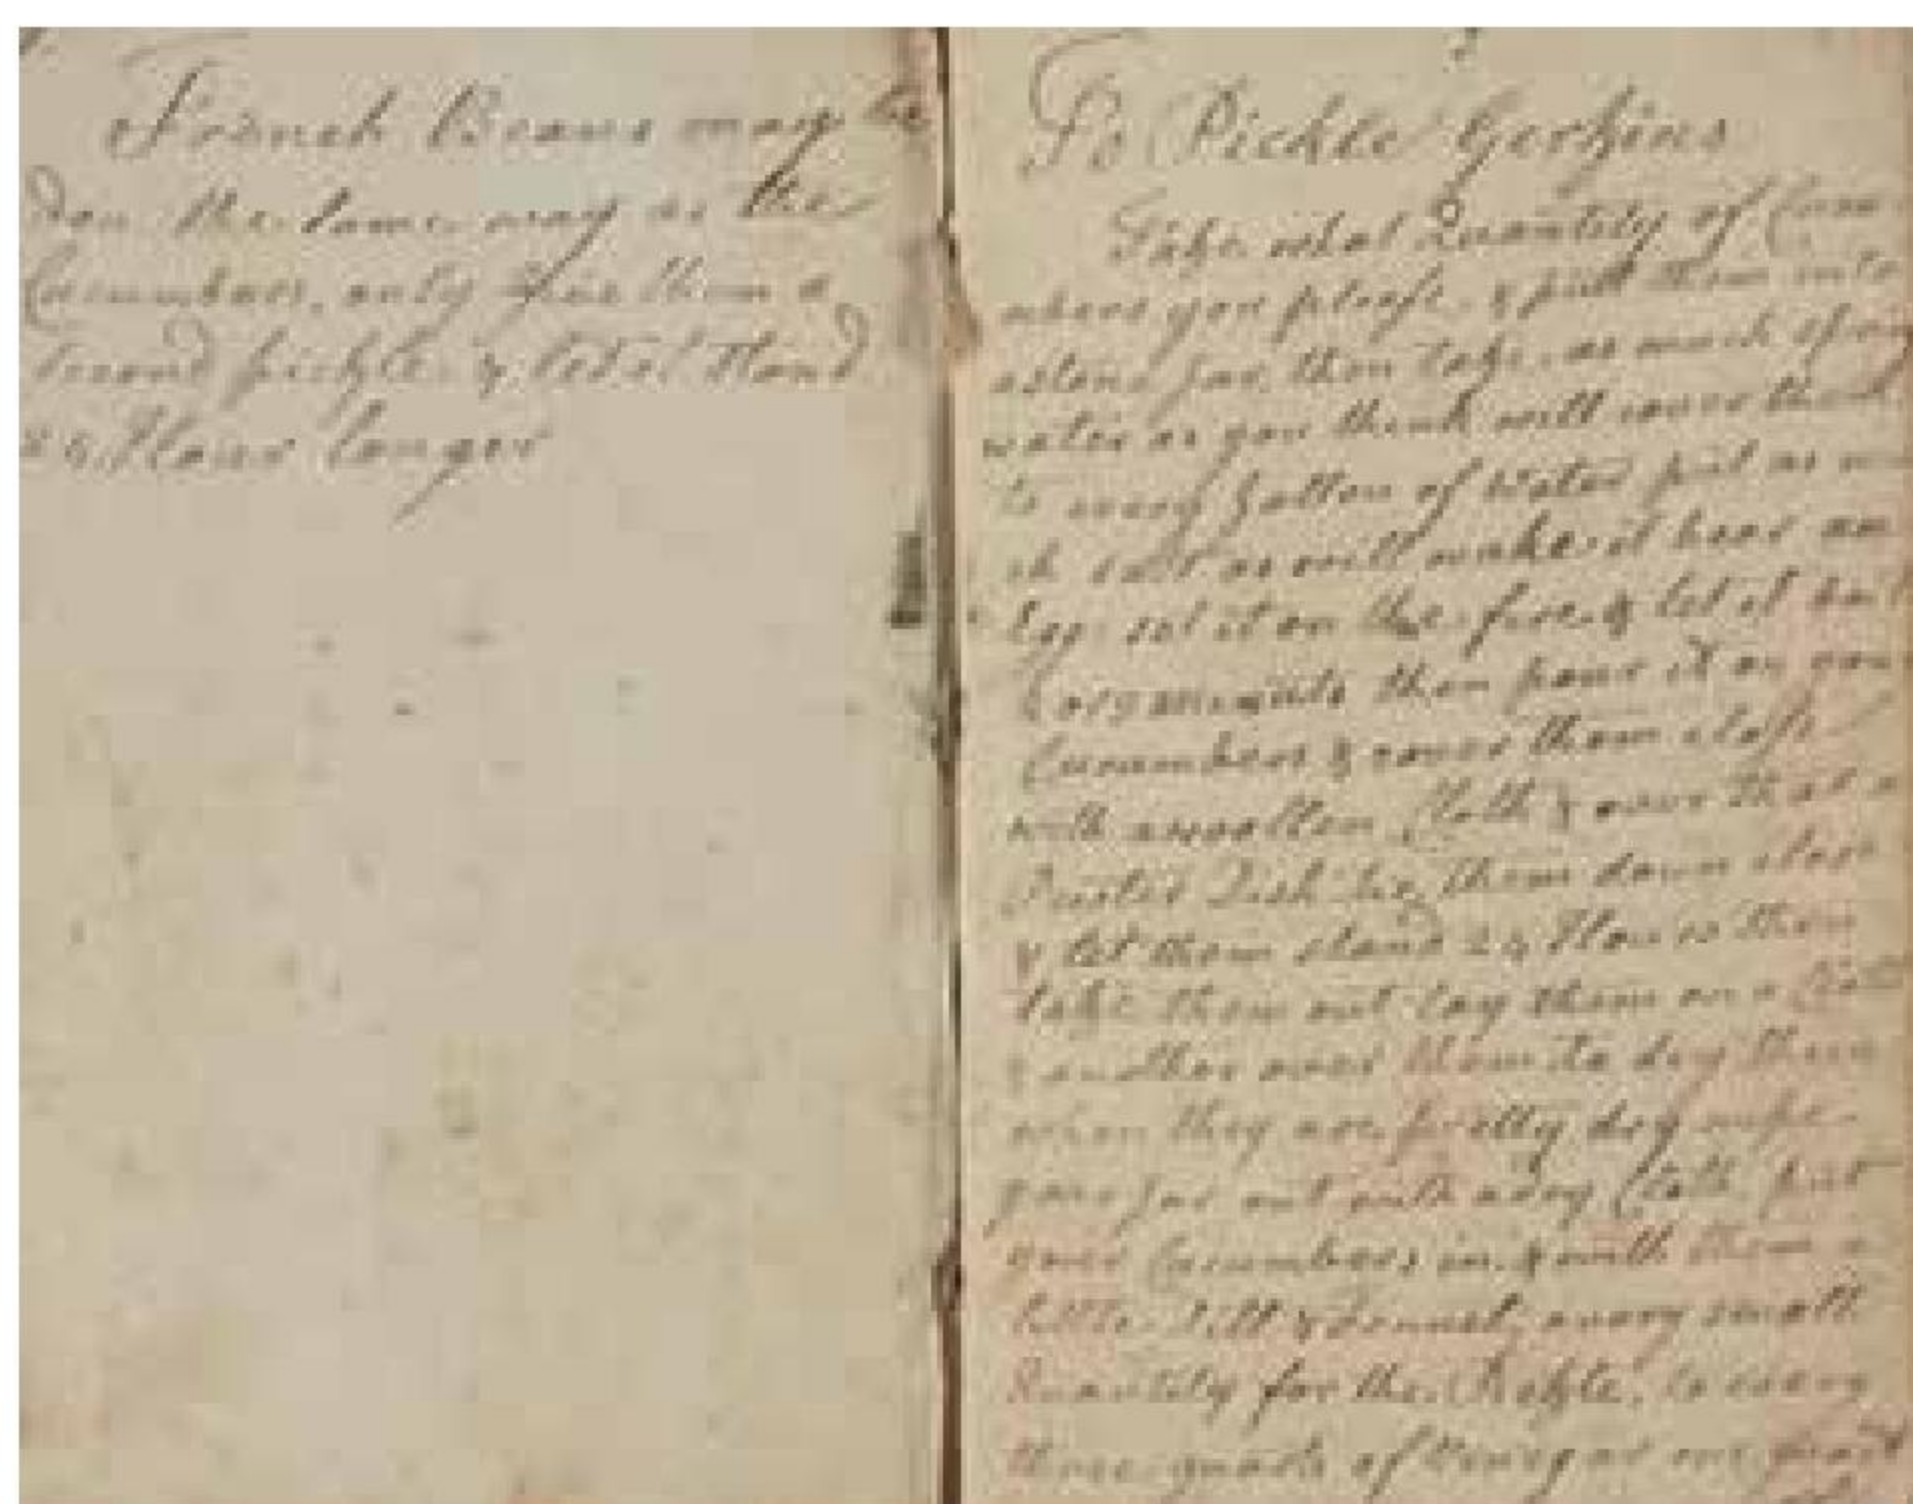 French Beans may be
don the same way as the
Cucumbers, only give them a
second pickle & let et stand
24 Hours longer
2
To Pickle Gerkins
Take what Quantity of Cucu
mbers you please & put them into
a stone Jar, then take as much spring
water as you think will cover them
to every Gallon of Water put as mu
ch salt as will make it bear an
Egg set it on the fire & let it boil
2 or 3 minuits then pour it on your
Cucumbers & cover them close
with a woollen Cloth & over that a
Pewter Dish tie them down close
& let them stand 24 Hours then
take them out lay them on a Cloth
& another over them to dry them
when they are pretty dry wipe
your Jar out with a dry Cloth put
your Cucumbers in & with them a
little Dill & Fennel, a very small
Quantity for the Pickle, to every
three quarts of Vinegar one quart